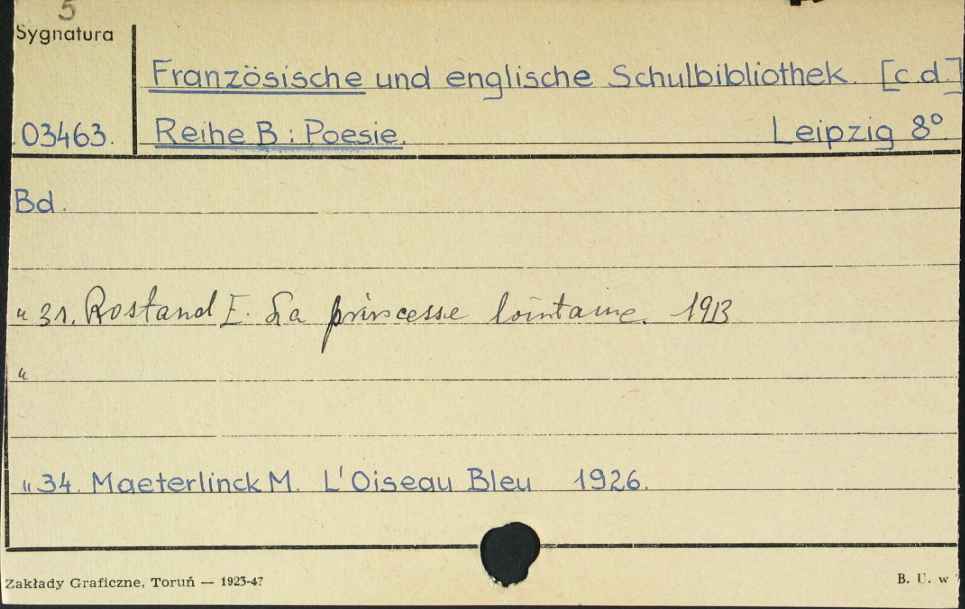 5
Sygnatura
Französische und englische Schulbibliothek. [c.d.]
03463. Reihe B: Poesie. Leipzig 8°.
Bd.
" 31. Rostand E. La princesse lointaine. 1913
"
" 34. Maeterlinck M. L'Oiseau Bleu 1926.
Zakłady Graficzne, Toruń — 1923-47
B. U. w